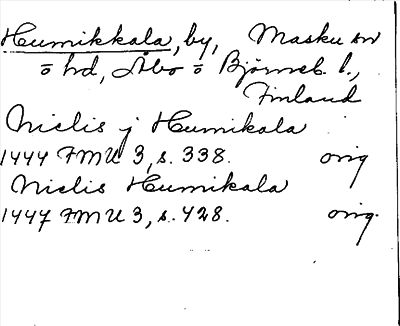 Humikkala, by, Masku sn
o hd, Åbo o Björneb. l.,
Finland
Nielis j Humikala
1444 FMU 3, s. 338. orig
Nielis Humikala
1447 FMU 3, s. 428. orig.